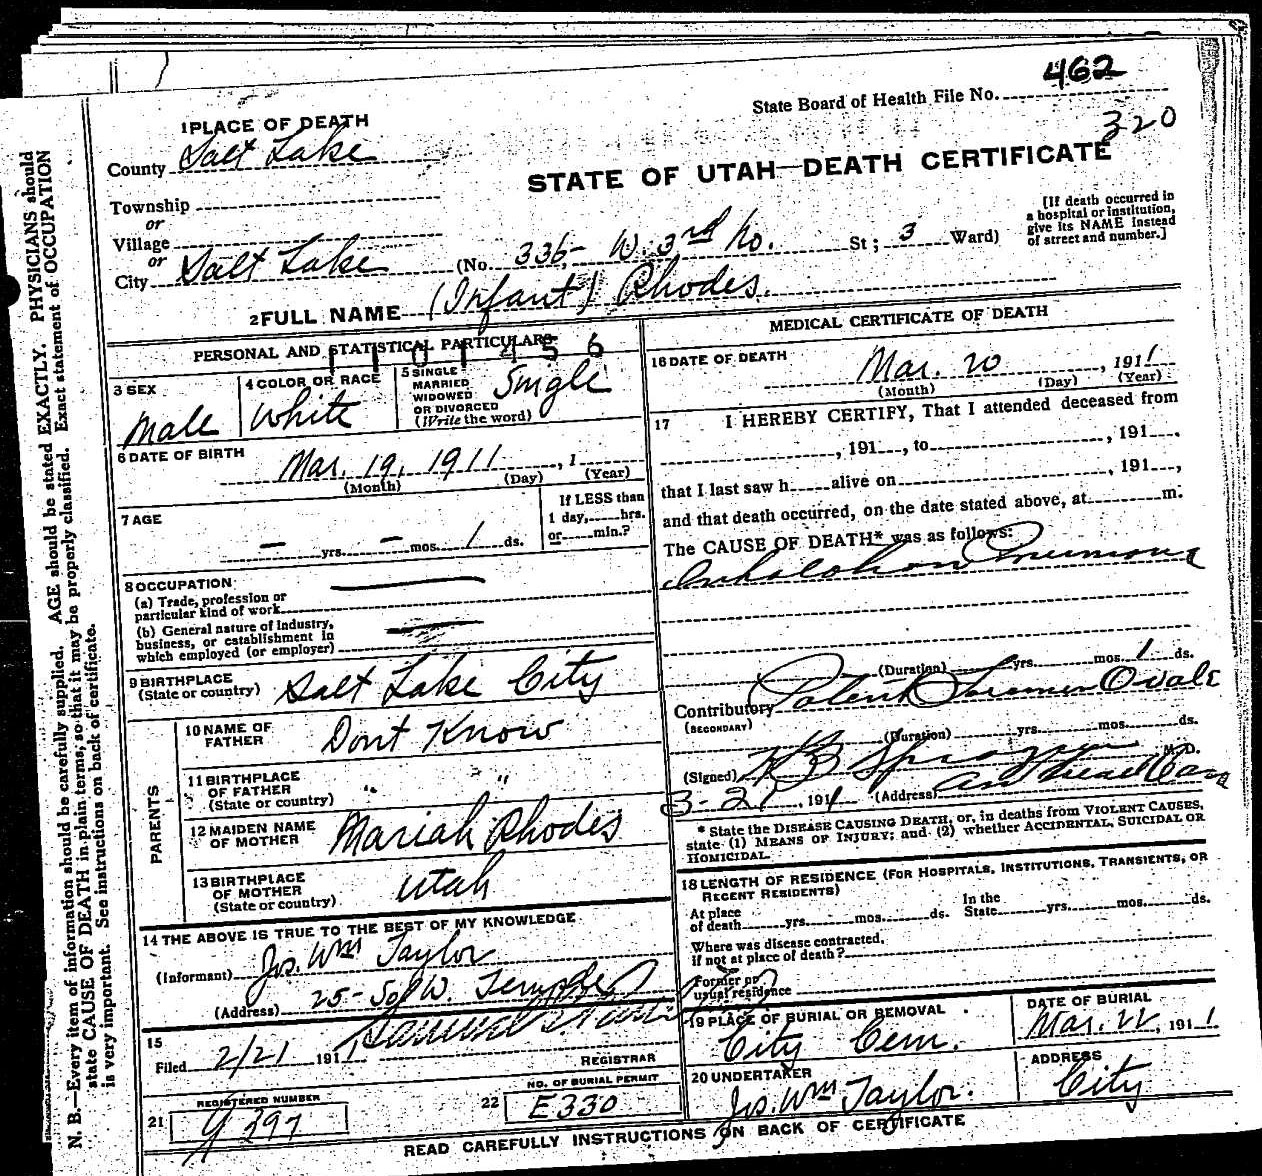 462
State Board of Health File No.
320
1 PLACE OF DEATH
County Salt Lake
STATE OF UTAH—DEATH CERTIFICATE
Township
or
Village
or
City Salt Lake (No. 336 W. 3rd No. St; 3 Ward)
[If death occurred in
a hospital or institution,
give its NAME instead
of street and number.]
2 FULL NAME (Infant) Rhodes.
PERSONAL AND STATISTICAL PARTICULARS
1101456
3 SEX
Male
4 COLOR OR RACE
White
5 SINGLE
MARRIED
WIDOWED
OR DIVORCED
(Write the word)
Single
6 DATE OF BIRTH
Mar. 19, 1911, 1
(Month) (Day) (Year)
7 AGE
— yrs. — mos. 1 ds.
If LESS than
1 day, hrs.
or min.?
8 OCCUPATION
(a) Trade, profession or
particular kind of work
(b) General nature of industry,
business, or establishment in
which employed (or employer)
9 BIRTHPLACE
(State or country) Salt Lake City
PARENTS
10 NAME OF
FATHER Dont Know
11 BIRTHPLACE
OF FATHER
(State or country) " "
12 MAIDEN NAME
OF MOTHER Mariah Rhodes
13 BIRTHPLACE
OF MOTHER
(State or country) Utah
14 THE ABOVE IS TRUE TO THE BEST OF MY KNOWLEDGE
(Informant) Jos. Wm Taylor
(Address) 25 So. W. Temple
15
Filed 2/21 1911
REGISTRAR
21 REGISTERED NUMBER
G 397
22 NO. OF BURIAL PERMIT
E330
MEDICAL CERTIFICATE OF DEATH
16 DATE OF DEATH
Mar. 20, 1911
(Month) (Day) (Year)
17 I HEREBY CERTIFY, That I attended deceased from
, 191, to , 191.
that I last saw h alive on , 191,
and that death occurred, on the date stated above, at m.
The CAUSE OF DEATH* was as follows:
Inhalation Pneumonia
(Duration) yrs. mos. 1 ds.
Contributory Patent Foramen Ovale
(SECONDARY)
(Duration) yrs. mos. ds.
(Signed) M. D.
3-21, 1911 (Address)
* State the DISEASE CAUSING DEATH, or, in deaths from VIOLENT CAUSES,
state (1) MEANS OF INJURY; and (2) whether ACCIDENTAL, SUICIDAL OR
HOMICIDAL.
18 LENGTH OF RESIDENCE (FOR HOSPITALS, INSTITUTIONS, TRANSIENTS, OR
RECENT RESIDENTS)
At place
of death yrs. mos. ds.
In the
State yrs. mos. ds.
Where was disease contracted,
if not at place of death?
Former or
usual residence
19 PLACE OF BURIAL OR REMOVAL
City Cem.
DATE OF BURIAL
Mar. 22, 1911
20 UNDERTAKER
Jos. Wm Taylor.
ADDRESS
City
READ CAREFULLY INSTRUCTIONS ON BACK OF CERTIFICATE
N. B.—Every item of information should be carefully supplied. AGE should be stated EXACTLY. PHYSICIANS should
state CAUSE OF DEATH in plain terms, so that it may be properly classified. Exact statement of OCCUPATION
is very important. See instructions on back of certificate.